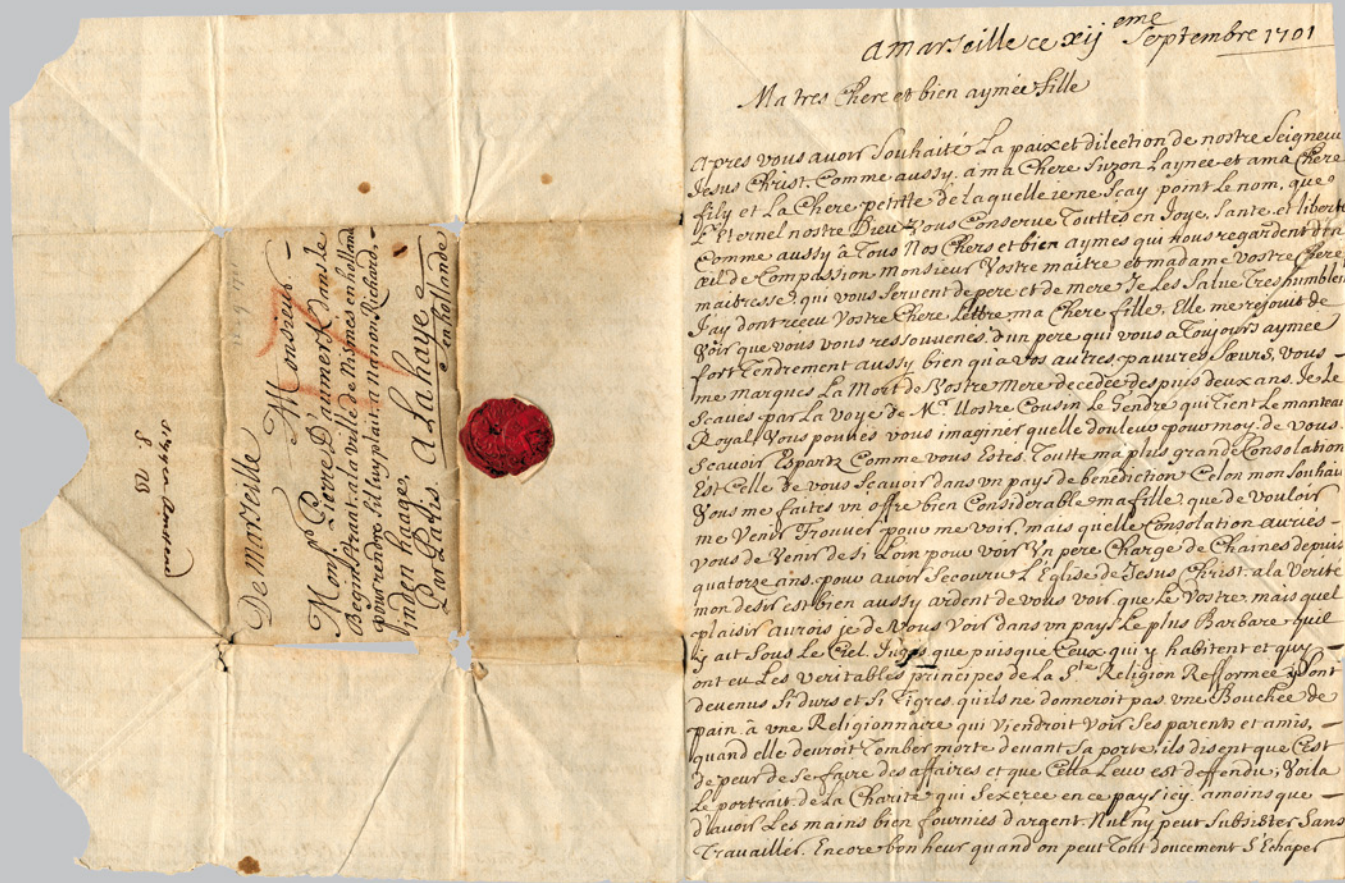 De Marseille
Monsieur
Mons.r Pierre D'aumerk dans le
Begin strant. a la ville de Nismes en hollande
pour rendre s'il luy plait. a Nanon Richard.
inden haage,
Par Paris. A La haye
en hollande
A Marseille ce xij eme Septembre 1701
Ma tres Chere et bien aymée fille
Apres vous avoir Souhaité La paix et dilection de nostre Seigneur
Jesus Christ. Comme aussy. a ma Chere Suzon Laynée et a ma Chere
fily et La Chere petitte de laquelle ie ne Sçay point Le nom, que
L'Eternel nostre Dieu Vous Conserve Touttes en Joye, Sante, et liberté
Comme aussy â Tous Nos Chers et bien aymes qui nous regardent d'un
œil de Compassion Monsieur Vostre maitre et madame vostre Chere
maitresse, qui vous Servent de pere et de mere Je Les Salue Tres humblem
J'ay dont receu Vostre Chere Lettre, ma Chere fille, Elle me rejouit de
Voir que vous vous ressouvenés, d'un pere qui vous a Toujours aymée
fort Tendrement aussy bien qu'a vos autres pauvres Sœurs, Vous
me marques La Mort de Vostre Mere decedée despuis deux ans. Je Le
Scaues par La Voye de Mr. Nostre Cousin Le Gendre qui Tient Le manteau
Royal, Vous pouves vous imaginer quelle douleur pour moy. de vous
Scavoir Espartz Comme vous Estes. Toutte ma plus grande Consolation
Est Celle de vous Scavoir dans un pays de benediction Celon mon Souhait
Vous me faites un offre bien Considerable ma fille que de vouloir
me Venir Trouver pour me voir, mais quelle Consolation auriés
vous de Venir de si Loin pour voir Un pere Charge de Chaines depuis
quatorze ans. pour avoir Secouru L'Eglise de Jesus Christ. a la Verité
mon desir est bien aussy ardent de vous voir que Le Vostre, mais quel
plaisir aurois je de Vous Voir dans un pays Le plus Barbare quil
y ait Sous Le Ciel. Jugés que puisque Ceux qui y habitent et quy
ont eu Les veritables principes de La Ste Religion Refformée Sont
devenus Si durs et Si Tigres quils ne donneroit pas une Bouchée de
pain a une Religionnaire qui Viendroit Voir Ses parents et amis,
quand elle devroit Tomber morte devant Sa porte, ils disent que C'est
de peur de Se faire des affaires et que Cella Leur est deffendu; Voila
Le portrait de La Charité qui S'exerce en ce pays icy. a moins que
d'avoir Les mains bien fournies d'argent. Nul ny peut Subsister Sans
Travailler. Encore bon heur quand on peut Tout doucement S'Echaper